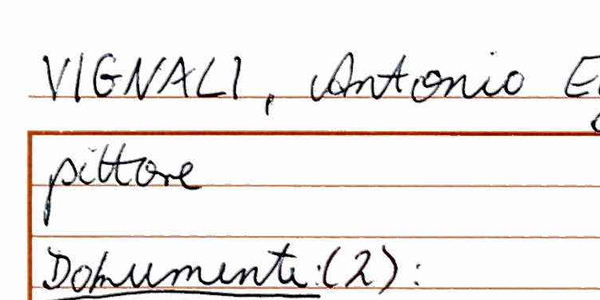 VIGNALI, Antonio
pittore
Dokumente:(2):